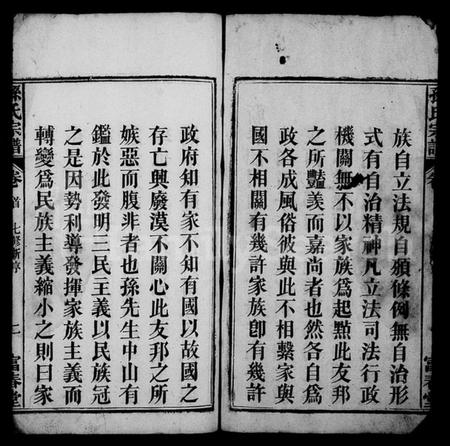 孫氏宗譜
卷
族自立法規自頒條例無自治形
式有自治精神凡立法司法行政
機關無不以家族爲起點此友邦
之所豔羨而嘉尚者也然各自爲
政各成風俗彼與此不相繫家與
國不相關有幾許家族卽有幾許
富春堂
政府知有家不知有國以故國之
存亡興廢漠不關心此友邦之所
嫉惡而腹非者也孫先生中山有
鑑於此發明三民主義以民族冠
之是因勢利導發揮家族主義而
轉變爲民族主義縮小之則曰家
孫氏宗譜
卷首
七修新序
上
富春堂